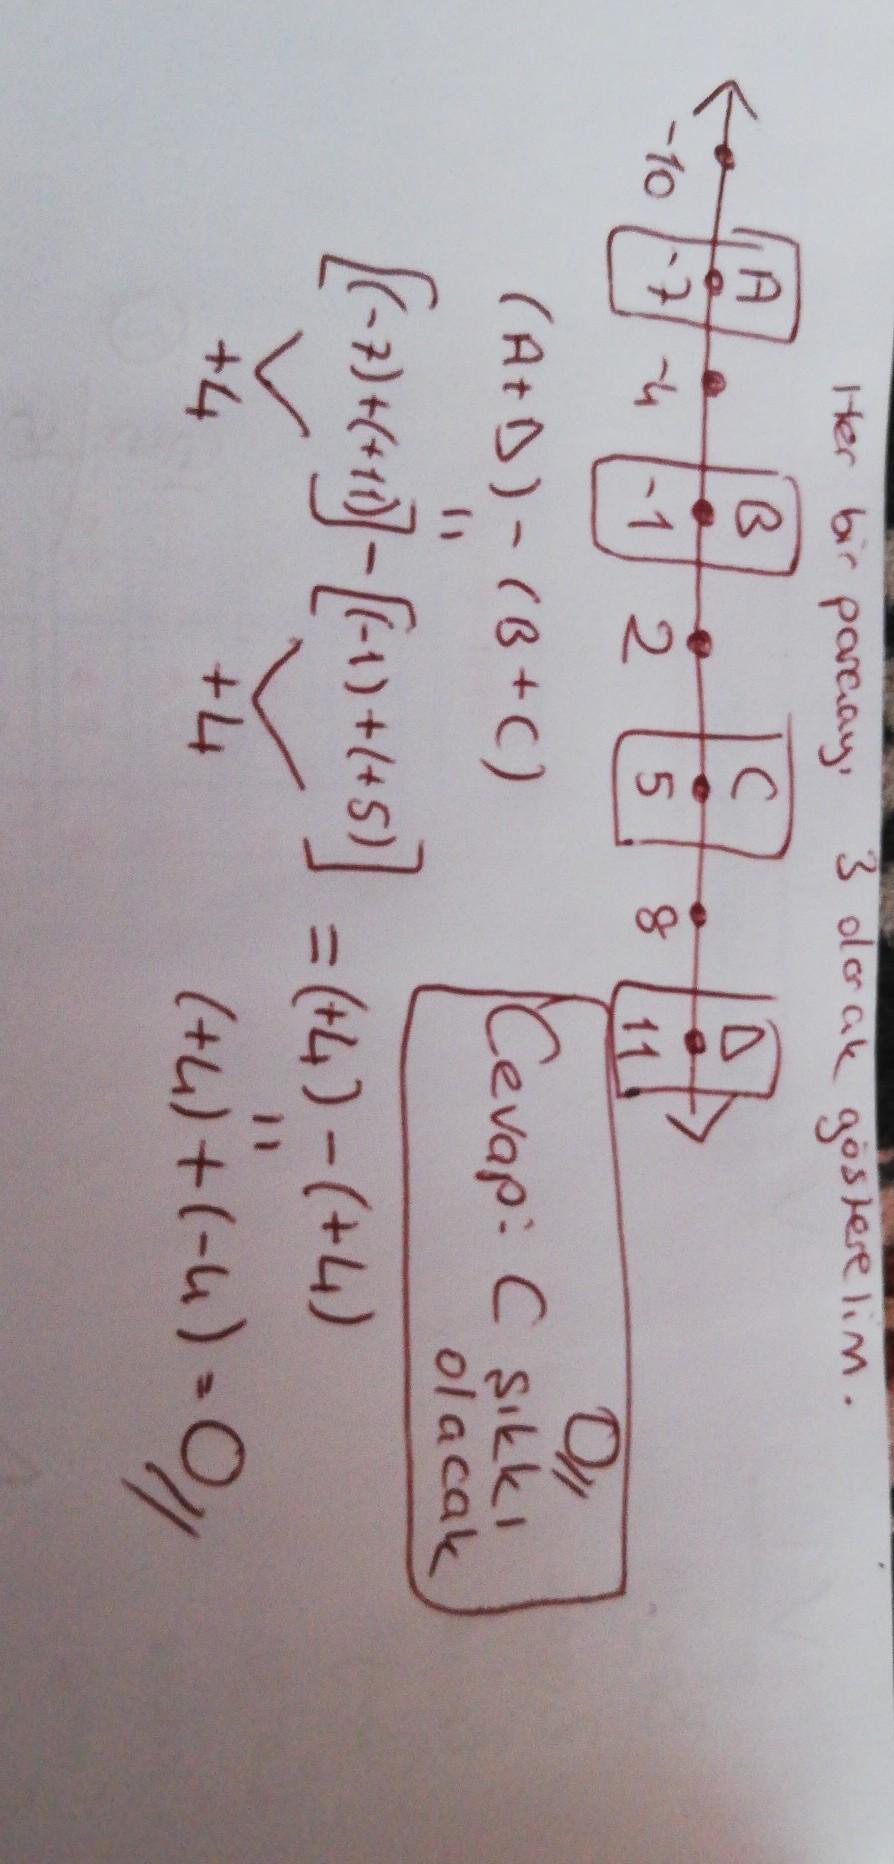 Her bir parçayı 3 olarak gösterelim.
A B C D
-10 -7 -4 -1 2 5 8 11
(A+D) - (B+C)
=
[(-7)+(+11)] - [(-1)+(+5)] = (+4) - (+4)
+4 +4
=
(+4)+(-4) = 0//
Cevap: C şıkkı 0//
olacak